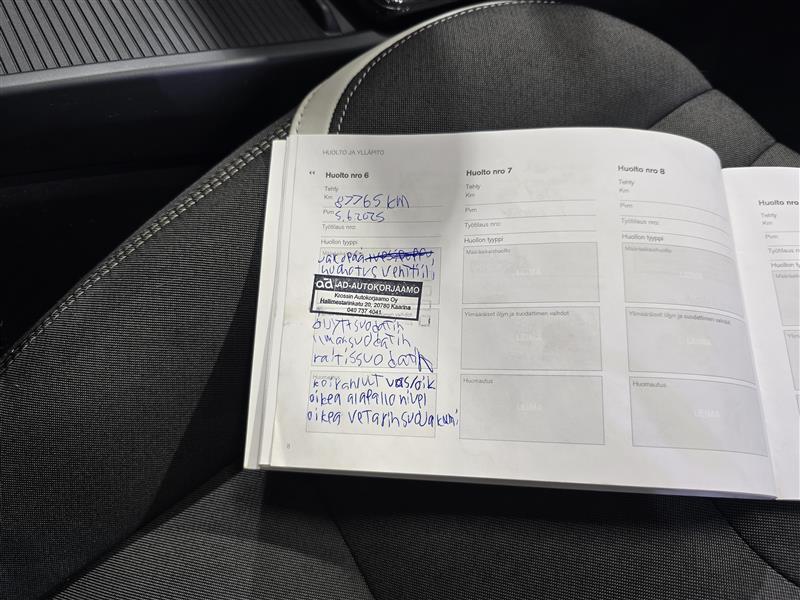 HUOLTO JA YLLÄPITO
“ Huolto nro 6
Tehty
Km 87765 KM
Pvm 5.6 2025
Työtilaus nro:
Huollon tyyppi
huohotus venttiili
ad AD-AUTOKORJAAMO
Krossin Autokorjaamo Oy
Hallimestarinkatu 20, 20780 Kaarina
040 737 4041
öljyt suodatin
ilmansuodatin
raitissuodatin
Huomautus
koiranluut vas/oik
oikea alapallo nivel
oikea vetarinsuojakumi
8
Huolto nro 7
Tehty
Km
Pvm
Työtilaus nro:
Huollon tyyppi
Määräaikaishuolto
LEIMA
Ylimääräiset öljyn ja suodattimen vaihdot
LEIMA
Huomautus
LEIMA
Huolto nro 8
Tehty
Km
Pvm
Työtilaus nro:
Huollon tyyppi
Määräaikaishuolto
LEIMA
Ylimääräiset öljyn ja suodattimen vaihdot
LEIMA
Huomautus
LEIMA
Huolto nro
Tehty
Km
Pvm
Työtilaus nro:
Huollon tyyppi